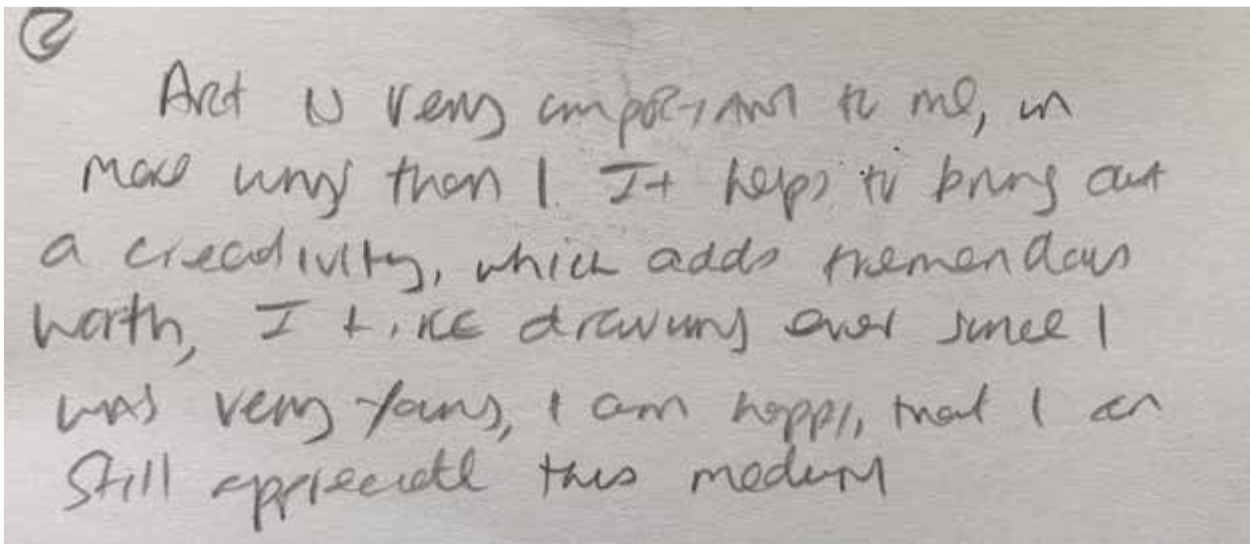 ②
Art is very important to me, in
more ways than 1. It helps to bring out
a creativity, which adds tremendous
worth, I like drawing ever since I
was very young, I am happy, that I can
still appreciate this medium